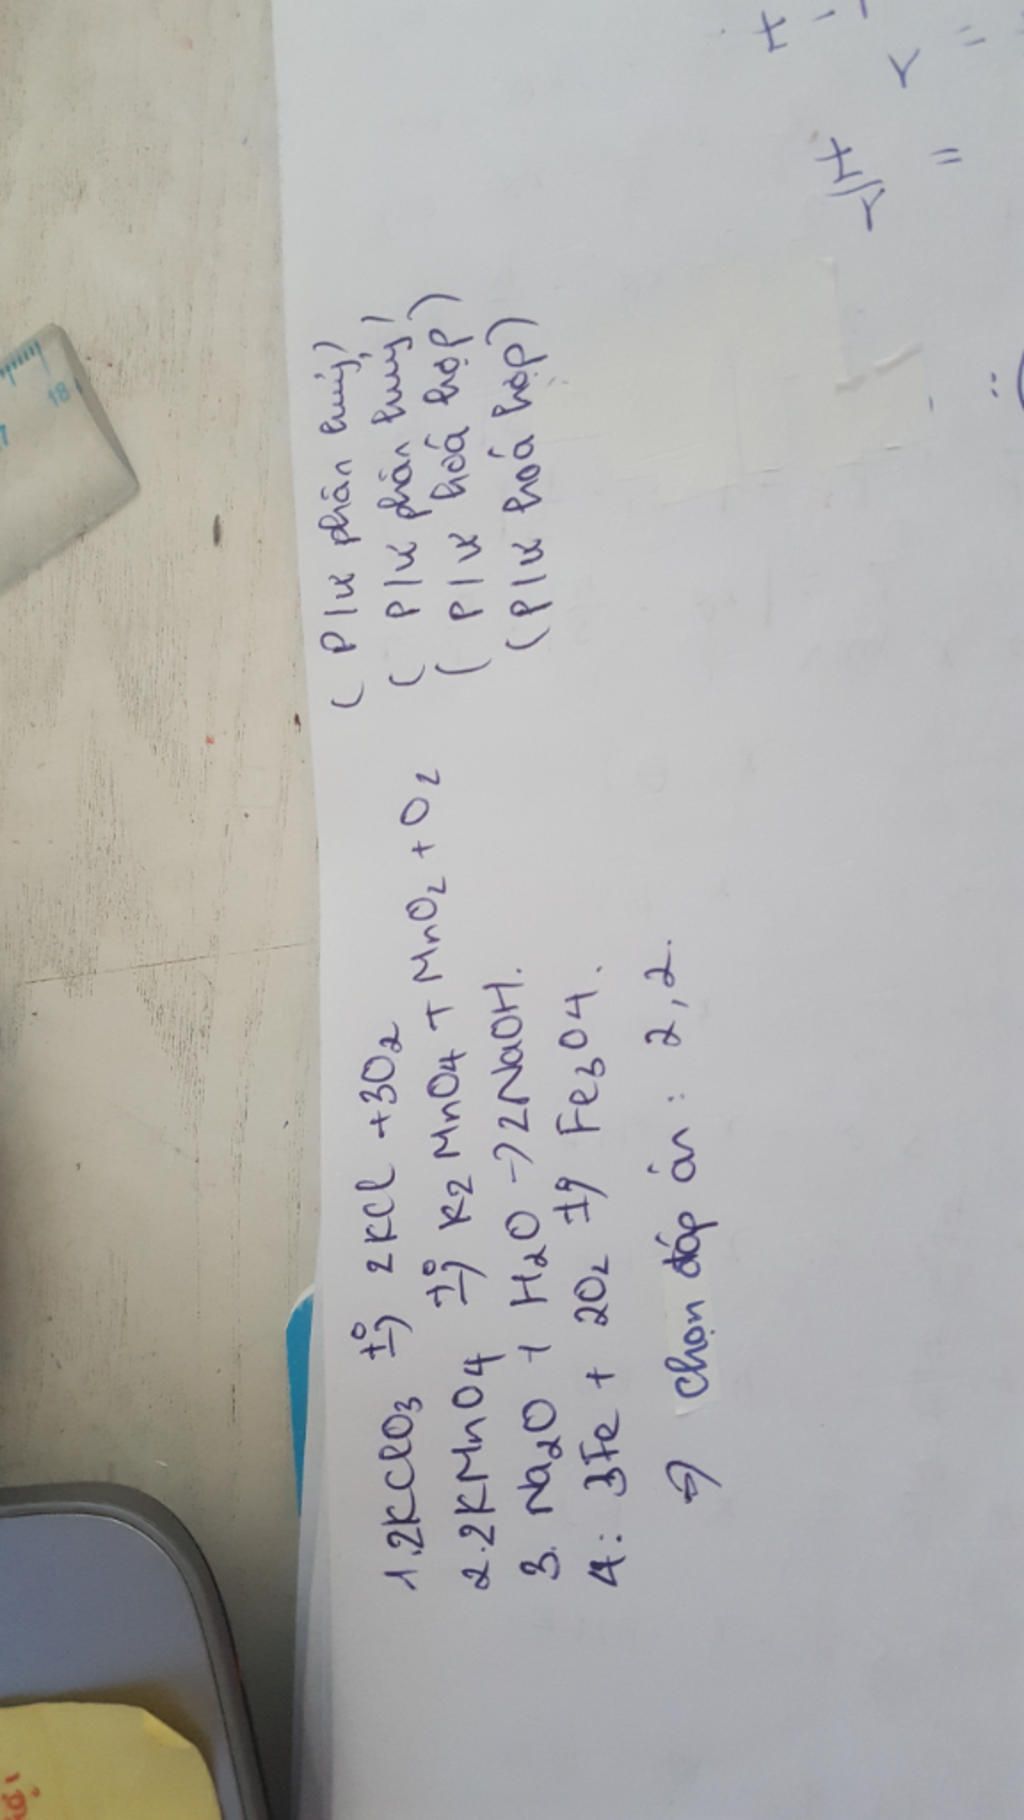 1. 2KClO3 t°→ 2KCl + 3O2 (P/ư phân huỷ)
2. 2KMnO4 t°→ K2MnO4 + MnO2 + O2 (P/ư phân huỷ)
3. Na2O + H2O → 2NaOH. (P/ư hoá hợp)
4: 3Fe + 2O2 t°→ Fe3O4. (P/ư hoá hợp)
⇒ chọn đáp án: 2, 2.
18